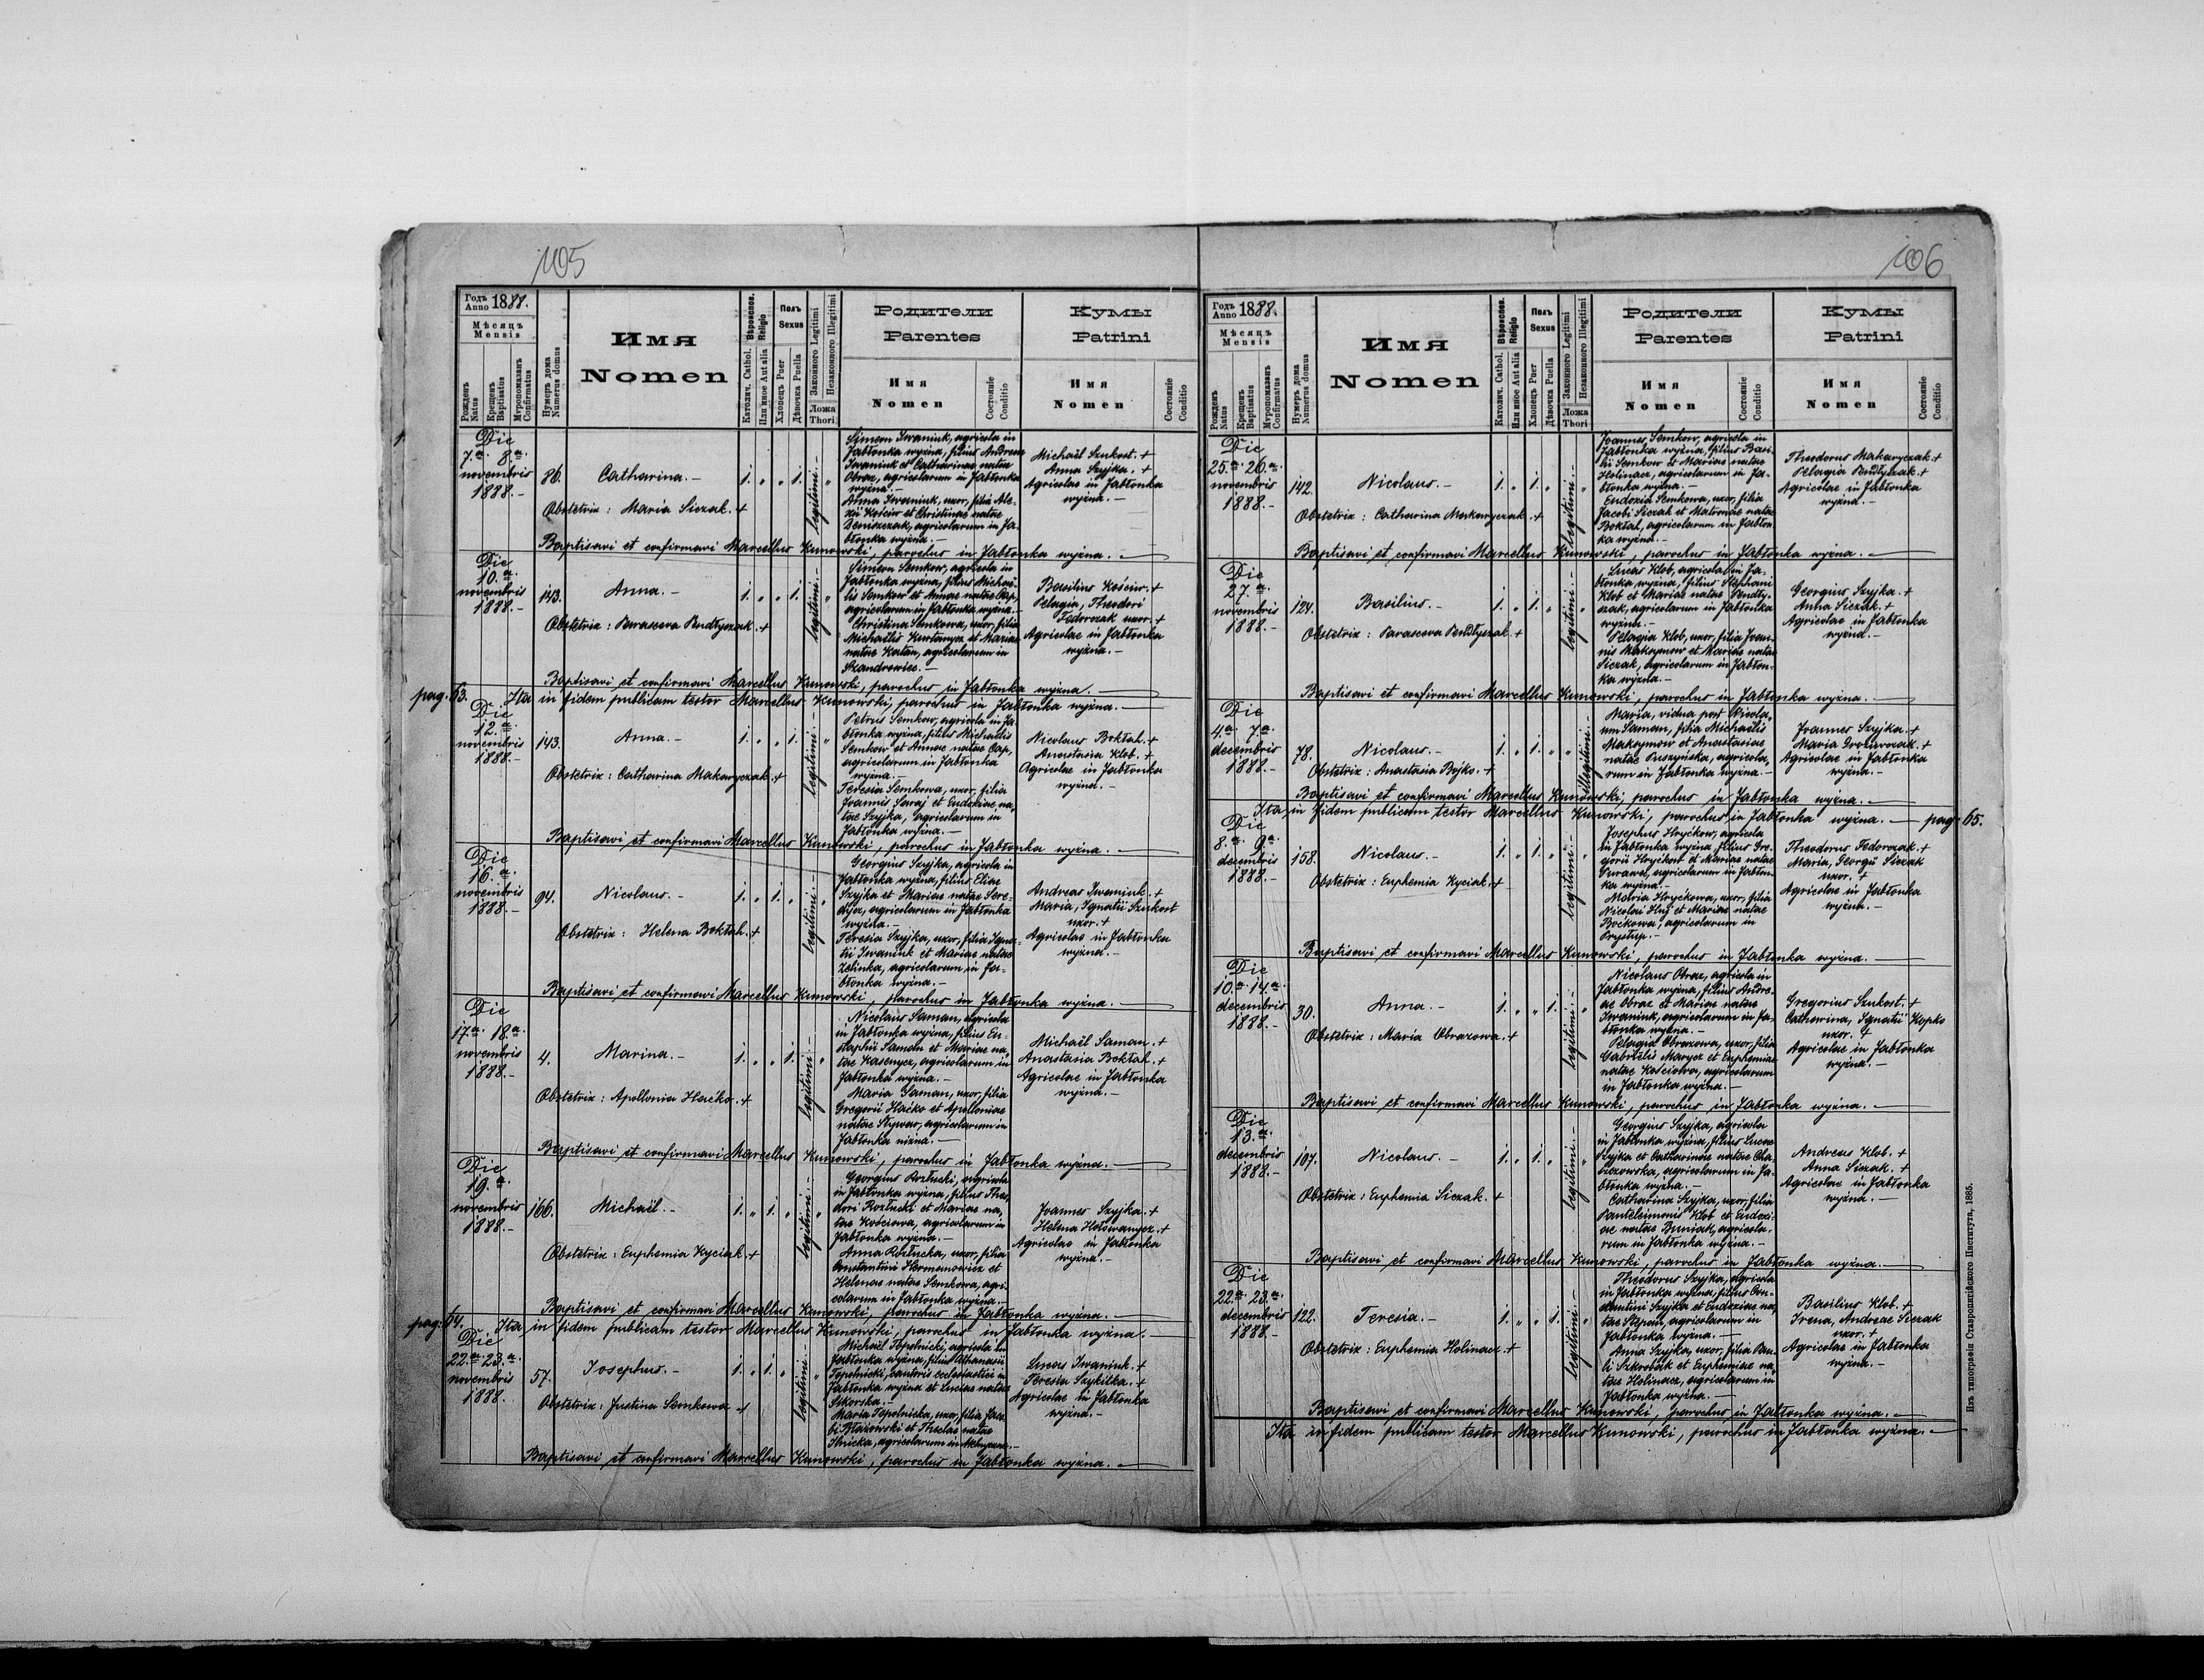 105
Годъ Anno 1888.
Мѣсяцъ
Mensis
Рожденъ Natus
Крещенъ Baptisatus
Муропомазанъ Confirmatus
Нумеръ дома
Numerus domus
Имя
Nomen
Вѣроиспов. Religio
Католич. Cathol.
Или иное Aut alia
Полъ
Sexus
Хлопецъ Puer
Дѣвочка Puella
Законного Legitimi
Незаконного Illegitimi
Ложа
Thori
Родители
Parentes
Имя
Nomen
Состояніе
Conditio
Кумы
Patrini
Имя
Nomen
Состояніе
Conditio
Die
7.a 8.a
novembris
1888.-
86.
Catharina.-
Obstetrix: Maria Siczak.+
1. „ „ 1.
legitimi.-
Simeon Iwaniuk, agricola in
Jabłonka wyżna, filius Andreae
Iwaniuk et Catharinae natae
Obraz, agricolarum in Jabłonka
wyżna.-
Anna Iwaniuk, uxor, filia Ale-
xii Kościw et Christinae natae
Deniszczak, agricolarum in Ja-
błonka wyżna.-
Michaël Sznkost.+
Anna Szyjka.+
Agricolae in Jabłonka
wyżna.-
Baptisavi et confirmavi Marcellus Kunowski, parochus in Jabłonka wyżna.
Die
10.a
novembris
1888.-
143.
Anna.-
Obstetrix: Parasceva Pendłyszak.+
1. „ „ 1.
legitimi.-
Simeon Semkow, agricola in
Jabłonka wyżna, filius Michaë-
lis Semkow et Annae natae Cap,
agricolarum in Jabłonka wyżna.-
Christina Semkowa, uxor, filia
Michaëlis Kurtanycz et Mariae
natae Katan, agricolarum in
Szandrowiec.-
Basilius Kościw.+
Pelagia, Theodori
Fedorczak uxor.+
Agricolae in Jabłonka
wyżna.-
Baptisavi et confirmavi Marcellus Kunowski, parochus in Jabłonka wyżna.
pag. 63. Ita in fidem publicam testor Marcellus Kunowski, parochus in Jabłonka wyżna.
Die
12.a
novembris
1888.-
143.
Anna.-
Obstetrix: Catharina Makaryczak.+
1. „ „ 1.
legitimi.-
Petrus Semkow, agricola in Ja-
błonka wyżna, filius Michaëlis
Semkow et Annae natae Cap,
agricolarum in Jabłonka
wyżna.-
Teresia Semkowa, uxor, filia
Joannis Saraj et Eudoxiae na-
tae Szyjka, agricolarum in
Jabłonka wyżna.-
Nicolaus Boktah.+
Anastasia Klob.+
Agricolae in Jabłonka
wyżna.-
Baptisavi et confirmavi Marcellus Kunowski, parochus in Jabłonka wyżna.
Die
16.a
novembris
1888.-
94.
Nicolaus.-
Obstetrix: Helena Boktah.+
1. „ 1. „
legitimi.-
Georgius Szyjka, agricola in
Jabłonka wyżna, filius Eliae
Szyjka et Mariae natae Sere-
dycz, agricolarum in Jabłonka
wyżna.-
Teresia Szyjka, uxor, filia Igna-
tii Iwaniuk et Mariae natae
Zelinka, agricolarum in Ja-
błonka wyżna.-
Andreas Iwaniuk.+
Maria, Ignatii Sznkost
uxor.+
Agricolae in Jabłonka
wyżna.-
Baptisavi et confirmavi Marcellus Kunowski, parochus in Jabłonka wyżna.
Die
17.a 18.a
novembris
1888.-
4.
Marina.-
Obstetrix: Apollonia Haćko.+
1. „ „ 1.
legitimi.-
Nicolaus Saman, agricola
in Jabłonka wyżna, filius Eu-
staphii Saman et Mariae na-
tae Kasenycz, agricolarum in
Jabłonka wyżna.-
Maria Saman, uxor, filia
Gregorii Haćko et Apolloniae
natae Stywar, agricolarum in
Jabłonka niżna.-
Michaël Saman.+
Anastasia Boktah.+
Agricolae in Jabłonka
wyżna.-
Baptisavi et confirmavi Marcellus Kunowski, parochus in Jabłonka wyżna.
Die
19.a
novembris
1888.-
166.
Michaël.-
Obstetrix: Euphemia Kyciak.+
1. „ 1. „
legitimi.-
Georgius Rozłucki, agricola
in Jabłonka wyżna, filius Theo-
dori Rozłucki et Mariae na-
tae Kościowa, agricolarum in
Jabłonka wyżna.-
Anna Rozłucka, uxor, filia
Constantini Hermanowicz et
Helenae natae Semkowa, agri-
colarum in Jabłonka wyżna.-
Joannes Szyjka.+
Helena Hołowanycz.+
Agricolae in Jabłonka
wyżna.-
Baptisavi et confirmavi Marcellus Kunowski, parochus in Jabłonka wyżna.
pag. 64. Ita in fidem publicam testor Marcellus Kunowski, parochus in Jabłonka wyżna.
Die
22.a 23.a
novembris
1888.
57.
Josephus.-
Obstetrix: Justina Semkowa.+
1. „ 1. „
legitimi.-
Michaël Topolnicki, agricola in
Jabłonka wyżna, filius Athanasii
Topolnicki, cantoris ecclesiastici in
Jabłonka wyżna et Luciae natae
Sikorska.-
Maria Topolnicka, uxor, filia Jaco-
bi Błażowski et Theclae natae
Ilnicka, agricolarum in
Lucas Iwaniuk.+
Teresia Szykitka.+
Agricolae in Jabłonka
wyżna.-
Baptisavi et confirmavi Marcellus Kunowski, parochus in Jabłonka wyżna.
106
Годъ Anno 1888.
Мѣсяцъ
Mensis
Рожденъ Natus
Крещенъ Baptisatus
Муропомазанъ Confirmatus
Нумеръ дома
Numerus domus
Имя
Nomen
Вѣроиспов. Religio
Католич. Cathol.
Или иное Aut alia
Полъ
Sexus
Хлопецъ Puer
Дѣвочка Puella
Законного Legitimi
Незаконного Illegitimi
Ложа
Thori
Родители
Parentes
Имя
Nomen
Состояніе
Conditio
Кумы
Patrini
Имя
Nomen
Состояніе
Conditio
Die
25.a 26.a
novembris
1888.-
142.
Nicolaus.-
Obstetrix: Catharina Makaryczak.+
1. „ 1. „
legitimi.-
Joannes Semkow, agricola in
Jabłonka wyżna, filius Basi-
lii Semkow et Mariae natae
Holinacz, agricolarum in Ja-
błonka wyżna.-
Eudoxia Semkowa, uxor, filia
Jacobi Siczak et Matronae natae
Boktah, agricolarum in Jabłon-
ka wyżna.-
Theodorus Makaryczak.+
Pelagia Pendłyszak.+
Agricolae in Jabłonka
wyżna.-
Baptisavi et confirmavi Marcellus Kunowski, parochus in Jabłonka wyżna.
Die
27.a
novembris
1888.-
124.
Basilius.-
Obstetrix: Parasceva Pendłyszak.+
1. „ 1. „
legitimi.-
Lucas Klob, agricola in Ja-
błonka wyżna, filius Stephani
Klob et Mariae natae Pendły-
szak, agricolarum in Jabłonka
wyżna.-
Pelagia Klob, uxor, filia Joan-
nis Maksymow et Mariae natae
Siczak, agricolarum in Jabłon-
ka wyżna.-
Georgius Szyjka.+
Anna Siczak.+
Agricolae in Jabłonka
wyżna.-
Baptisavi et confirmavi Marcellus Kunowski, parochus in Jabłonka wyżna.
Die
4.a 7.a
decembris
1888.-
78.
Nicolaus.-
Obstetrix: Anastasia Bojko.+
1. „ 1. „
illegitimi.-
Maria, vidua post Nicola-
um Saman, filia Michaëlis
Maksymow et Anastasiae
natae Puszyńska, agricola-
rum in Jabłonka wyżna.-
Joannes Szyjka.+
Maria
Agricolae in Jabłonka
wyżna.-
Baptisavi et confirmavi Marcellus Kunowski, parochus in Jabłonka wyżna.
Ita in fidem publicam testor Marcellus Kunowski, parochus in Jabłonka wyżna. pag. 65.
Die
8.a 9.a
decembris
1888.-
158.
Nicolaus.-
Obstetrix: Euphemia Kyciak.+
1. „ 1. „
legitimi.-
Josephus Hryćkow, agricola
in Jabłonka wyżna, filius Gre-
gorii Hryćkow et Mariae natae
Purawec, agricolarum in Jabłon-
ka wyżna.-
Maria Hryćkowa, uxor, filia
Nicolai Huj et Mariae natae
Boćkowa, agricolarum in
Prystup.-
Theodorus Fedorczak.+
Maria, Georgii Siczak
uxor.+
Agricolae in Jabłonka
wyżna.-
Baptisavi et confirmavi Marcellus Kunowski, parochus in Jabłonka wyżna.
Die
10.a 14.a
decembris
1888.-
30.
Anna.-
Obstetrix: Maria Obrazowa.+
1. „ „ 1.
legitimi.-
Nicolaus Obraz, agricola in
Jabłonka wyżna, filius Andre-
ae Obraz et Mariae natae
Iwaniuk, agricolarum in Ja-
błonka wyżna.-
Pelagia Obrazowa, uxor, filia
Gabriëlis Marycz et Euphemiae
natae Kościowa, agricolarum
in Jabłonka wyżna.-
Gregorius Sznkost.+
Catharina, Ignatii Kopko
uxor.+
Agricolae in Jabłonka
wyżna.-
Baptisavi et confirmavi Marcellus Kunowski, parochus in Jabłonka wyżna.
Die
13.a
decembris
1888.-
107.
Nicolaus.-
Obstetrix: Euphemia Siczak.+
1. „ 1. „
legitimi.-
Georgius Szyjka, agricola
in Jabłonka wyżna, filius Lucae
Szyjka et Catharinae natae Cha-
szczowska, agricolarum in Ja-
błonka wyżna.-
Catharina Szyjka, uxor, filia
Panteleimonis Klob et Eudoxi-
ae natae Buniak, agricola-
rum in Jabłonka wyżna.-
Andreas Klob.+
Anna Siczak.+
Agricolae in Jabłonka
wyżna.-
Baptisavi et confirmavi Marcellus Kunowski, parochus in Jabłonka wyżna.
Die
22.a 23.a
decembris
1888.-
122.
Teresia.-
Obstetrix: Euphemia Holinacz.+
1. „ „ 1.
legitimi.-
Theodorus Szyjka, agricola
in Jabłonka wyżna, filius Con-
stantini Szyjka et Eudoxiae na-
tae Stepan, agricolarum in
Jabłonka wyżna.-
Anna Szyjka, uxor, filia Pau-
li Szkrobak et Euphemiae na-
tae Holinacz, agricolarum in
Jabłonka wyżna.-
Basilius Klob.+
Irena, Andreae Siczak
uxor.+
Agricolae in Jabłonka
wyżna.-
Baptisavi et confirmavi Marcellus Kunowski, parochus in Jabłonka wyżna.
Ita in fidem publicam testor Marcellus Kunowski, parochus in Jabłonka wyżna.
Изъ типографіи Ставропигійского Института, 1885.